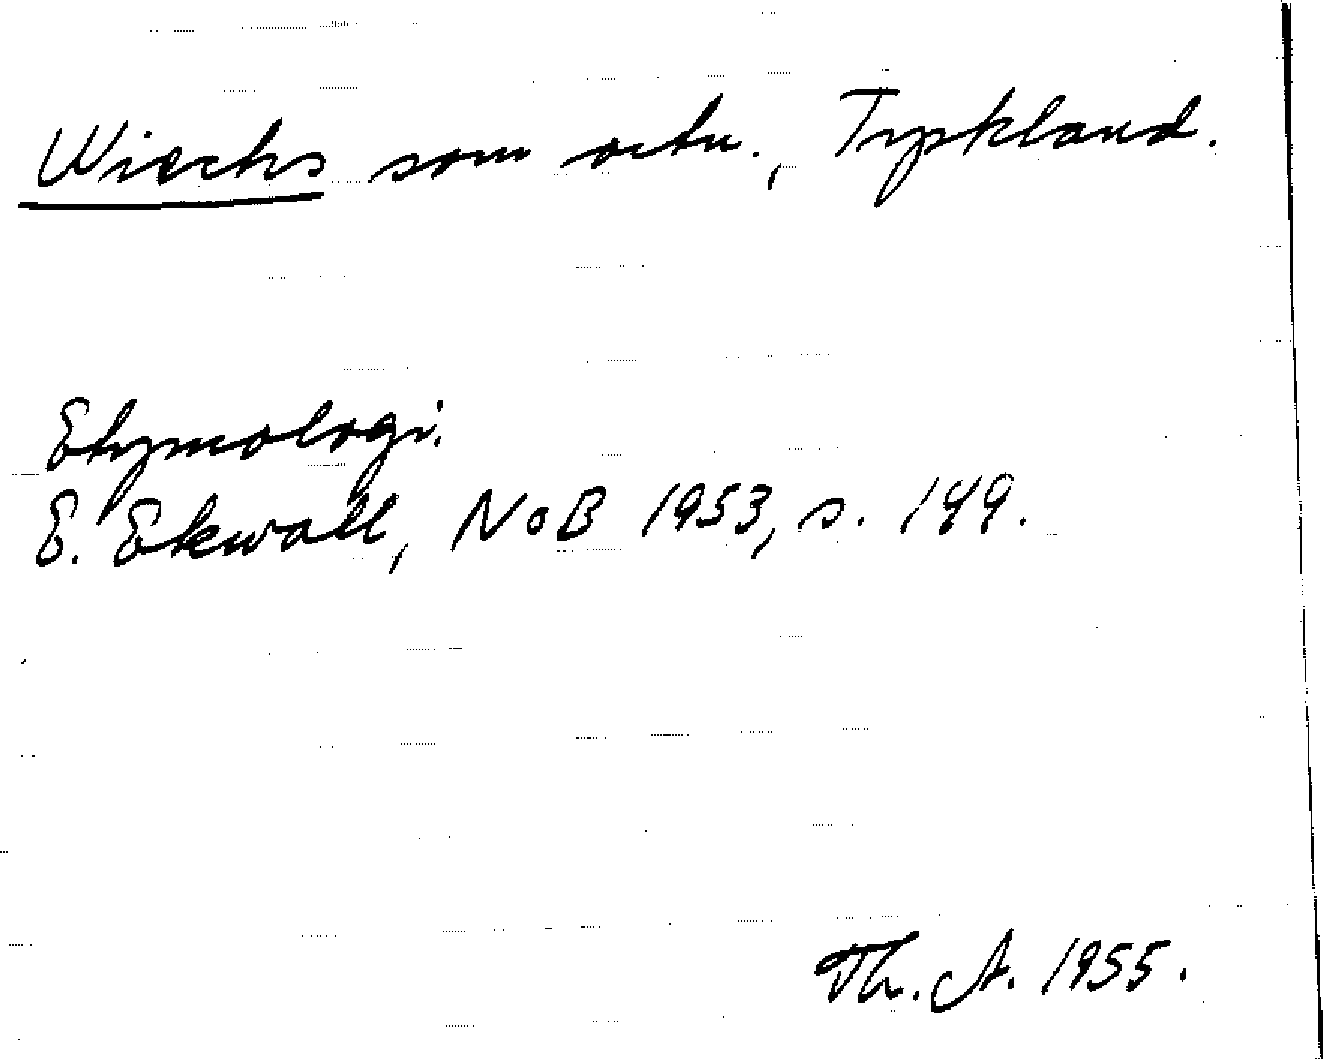 Wiechs som ortn., Tyskland.
Etymologi.
E. Ekwall, NoB 1953, s. 149.
Th. A. 1955.